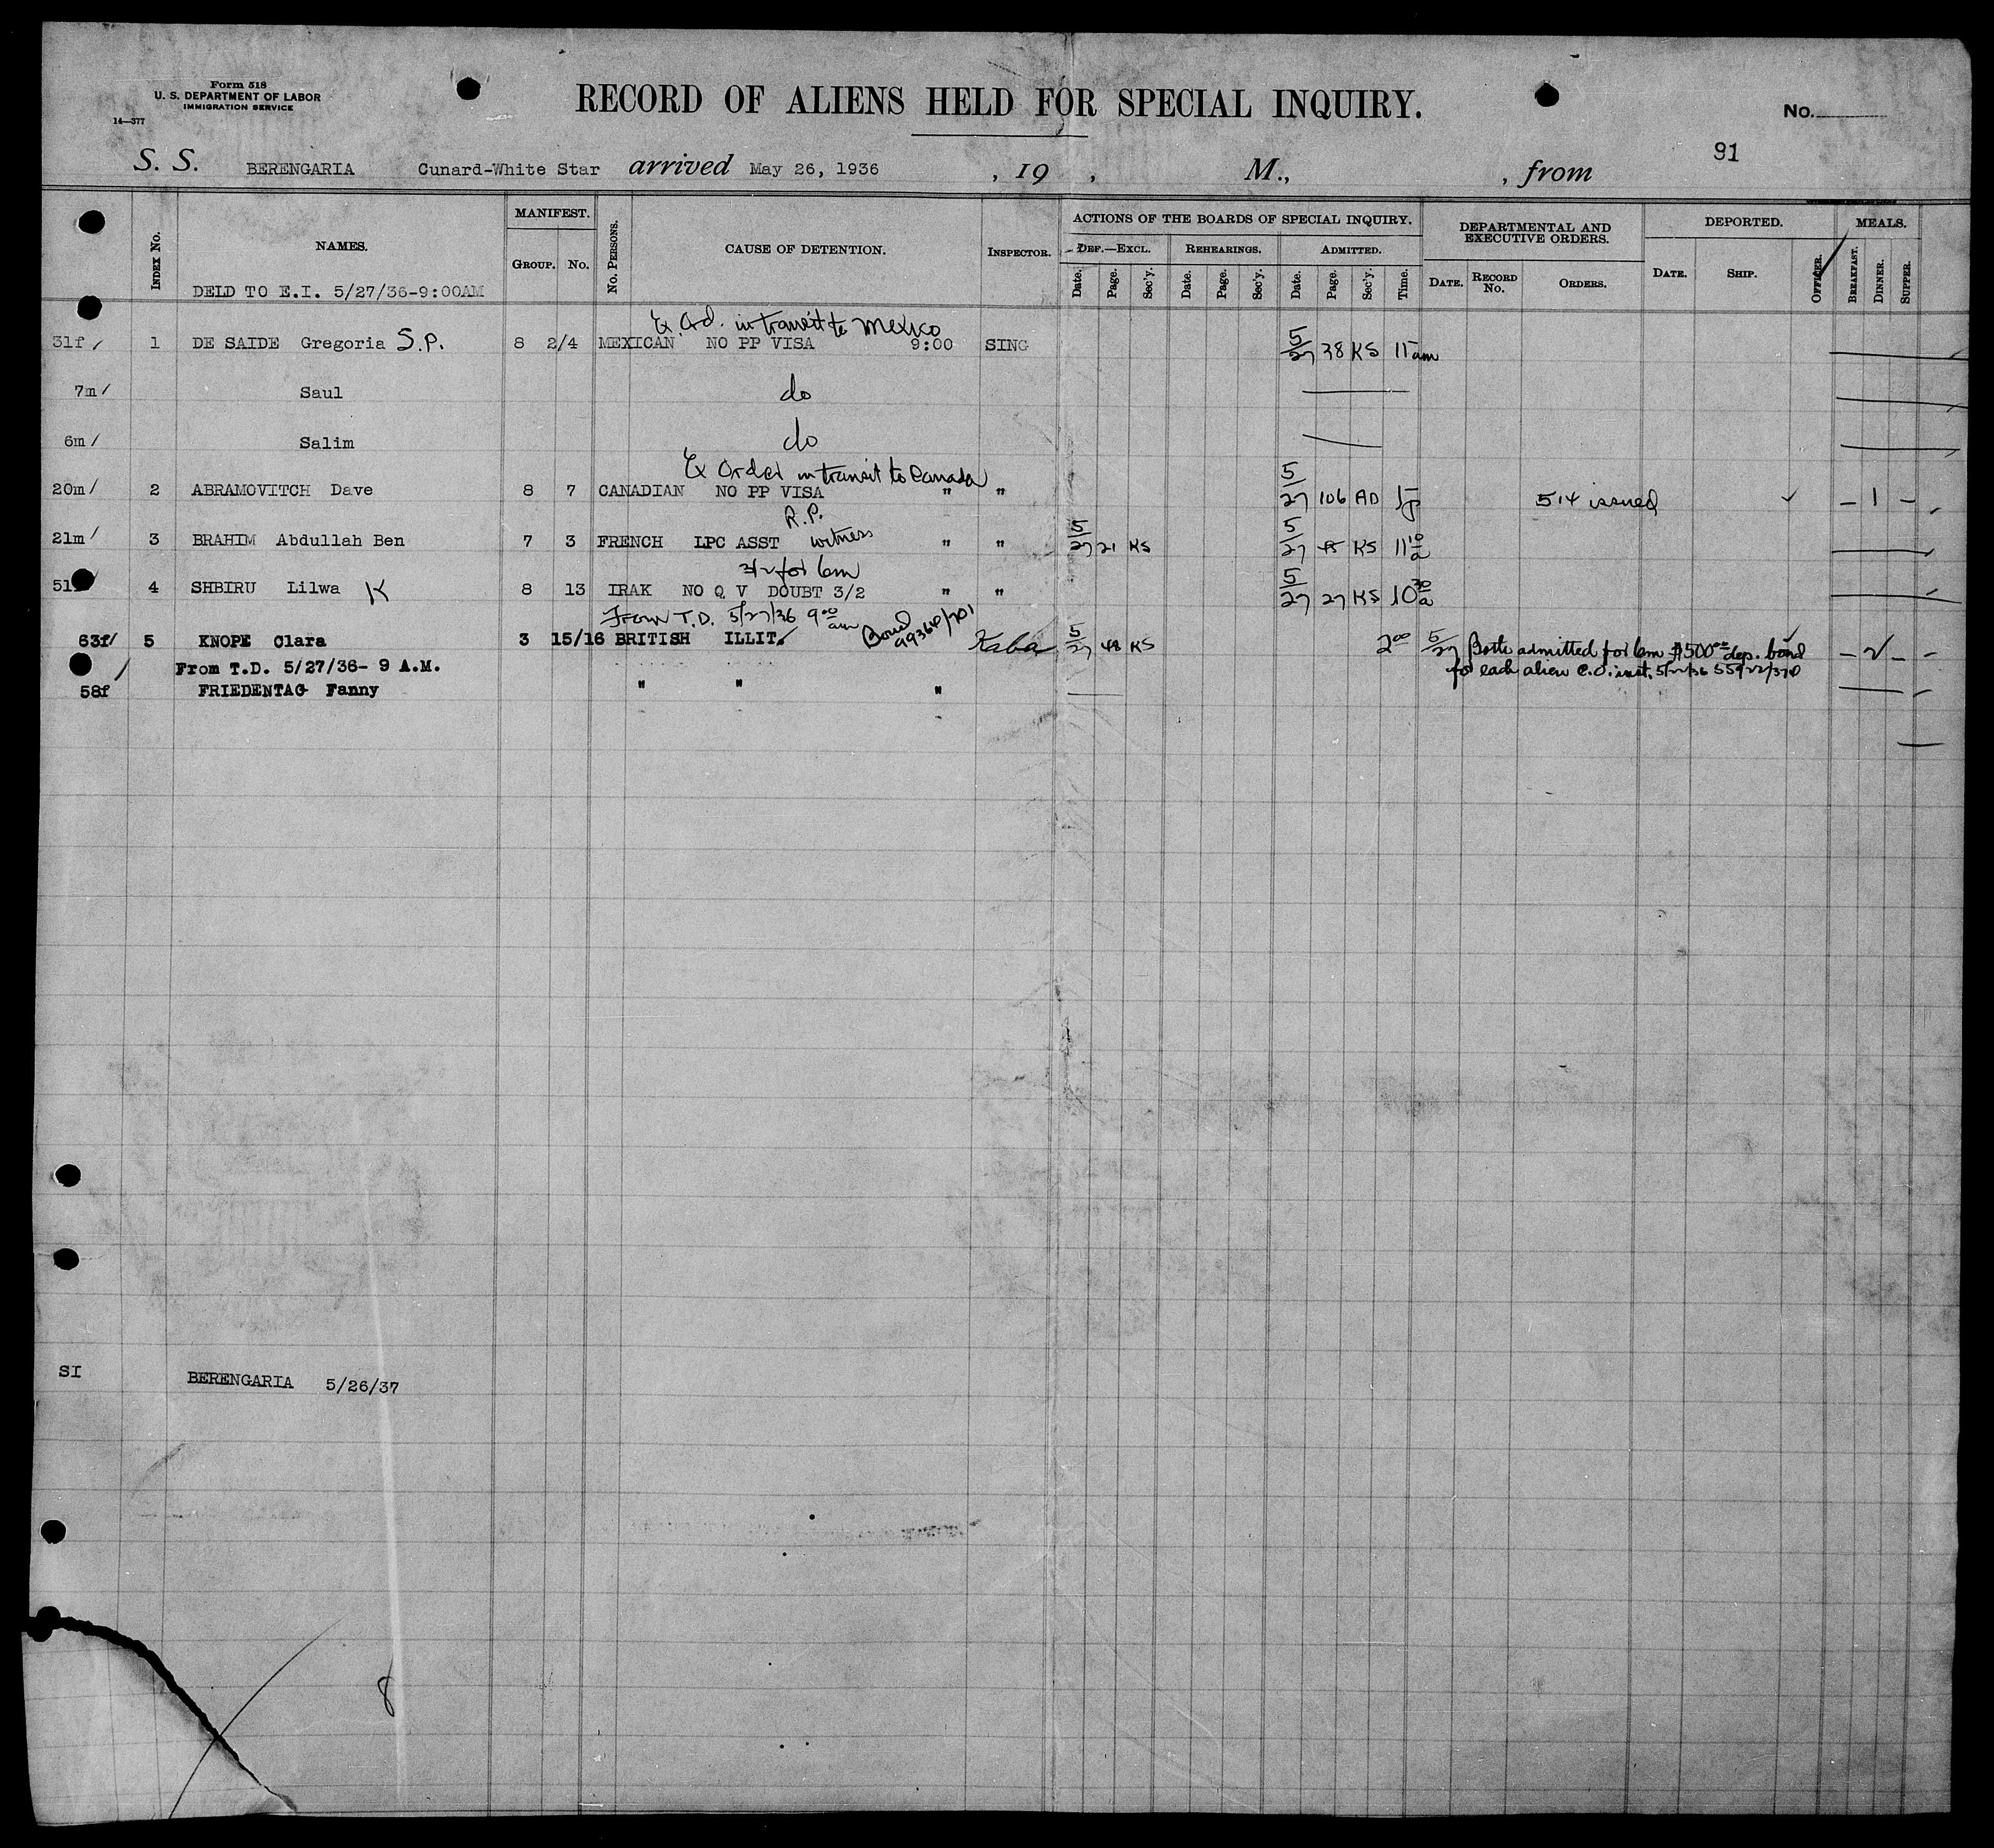 Form 518
U. S. DEPARTMENT OF LABOR
IMMIGRATION SERVICE
14—377
RECORD OF ALIENS HELD FOR SPECIAL INQUIRY.
No.
91
S. S. BERENGARIA Cunard-White Star arrived May 26, 1936 , 19 , M., , from
INDEX No. NAMES. MANIFEST. GROUP. No. No. PERSONS. CAUSE OF DETENTION. INSPECTOR. ACTIONS OF THE BOARDS OF SPECIAL INQUIRY. DEPARTMENTAL AND EXECUTIVE ORDERS. DEPORTED. MEALS.
DEF.—EXCL. REHEARINGS. ADMITTED.
Date. Page. Sec'y. Date. Page. Sec'y. Date. Page. Sec'y. Time. DATE. RECORD No. ORDERS. DATE. SHIP. OFFICER. BREAKFAST. DINNER. SUPPER.
DELD TO E.I. 5/27/36-9:00AM
Ex Ord. in transit to Mexico
31f 1 DE SAIDE Gregoria S.P. 8 2/4 MEXICAN NO PP VISA 9:00 SING 5/27 38 KS 11 am
7m Saul do
6m Salim do
Ex Order in transit to Canada
20m 2 ABRAMOVITCH Dave 8 7 CANADIAN NO PP VISA " " 5/27 106 AD 514 issued 1
R.P.
21m 3 BRAHIM Abdullah Ben 7 3 FRENCH LPC ASST witness " " 5/27 21 KS 5/27 45 KS 11 10 a
3/2 for 6m
51 4 SHBIRU Lilwa K 8 13 IRAK NO Q V DOUBT 3/2 " " 5/27 27 KS 10 30 a
From T.D. 5/27/36 9 00 am Bond
63f 5 KNOPE Clara 3 15/16 BRITISH ILLIT. Kaba 5/27 48 KS 2 00 5/27 Both admitted for 6m $500 00 dep. bond 2
From T.D. 5/27/36- 9 A.M. for each alien C.O. inst. 5/22/36
58f FRIEDENTAG Fanny " " "
SI BERENGARIA 5/26/37
8